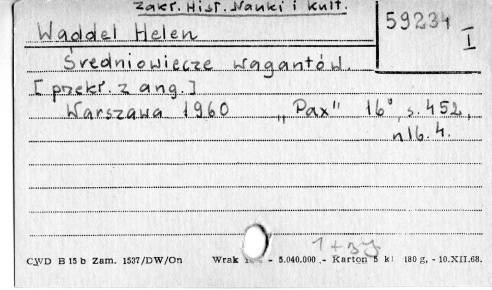 Zakr. Hist. Nauki i Kult.
59234
I
Waddel Helen
Średniowiecze wagantów.
[przekł. z ang.]
Warszawa 1960 „Pax" 16°, s. 452,
nlb. 4.
1 + 3
CWD B 15 b Zam. 1537/DW/On Wrak - 5.040.000 - Karton 5 kl 180 g, - 10.XII.68.